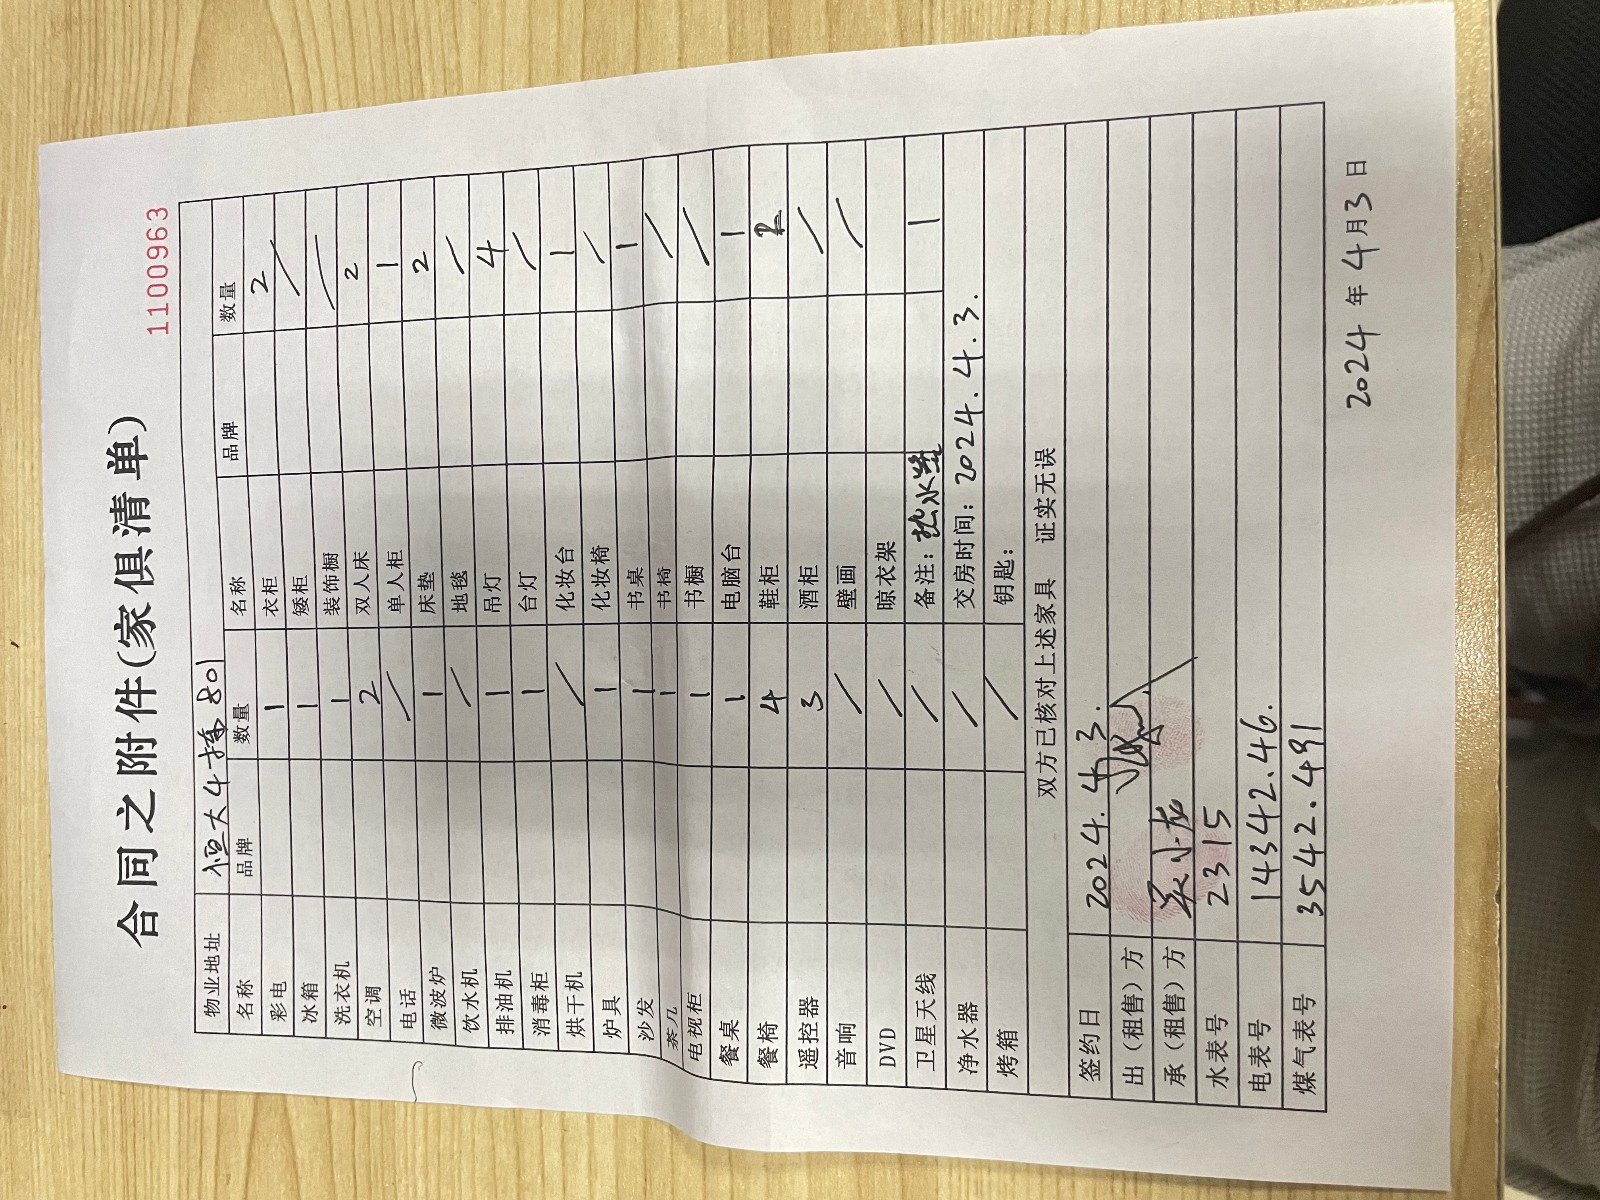 1100963
合同之附件(家俱清单)
物业地址 恒大4栋801
名称 品牌 数量 名称 品牌 数量
彩电 1 衣柜 2
冰箱 1 矮柜 /
洗衣机 1 装饰橱 /
空调 2 双人床 2
电话 / 单人柜 1
微波炉 1 床垫 2
饮水机 / 地毯 /
排油机 1 吊灯 4
消毒柜 1 台灯 /
烘干机 / 化妆台 1
炉具 1 化妆椅 /
沙发 1 书桌 1
茶几 1 书椅 /
电视柜 1 书橱 /
餐桌 1 电脑台 1
餐椅 4 鞋柜 2
遥控器 3 酒柜 /
音响 / 壁画 /
DVD / 晾衣架
卫星天线 / 备注：热水器 1
净水器 / 交房时间：2024.4.3.
烤箱 / 钥匙：
双方已核对上述家具 证实无误
签约日 2024.4.3.
出（租售）方
承（租售）方
水表号 2315
电表号 14342.46.
煤气表号 3542.491
2024年4月3日